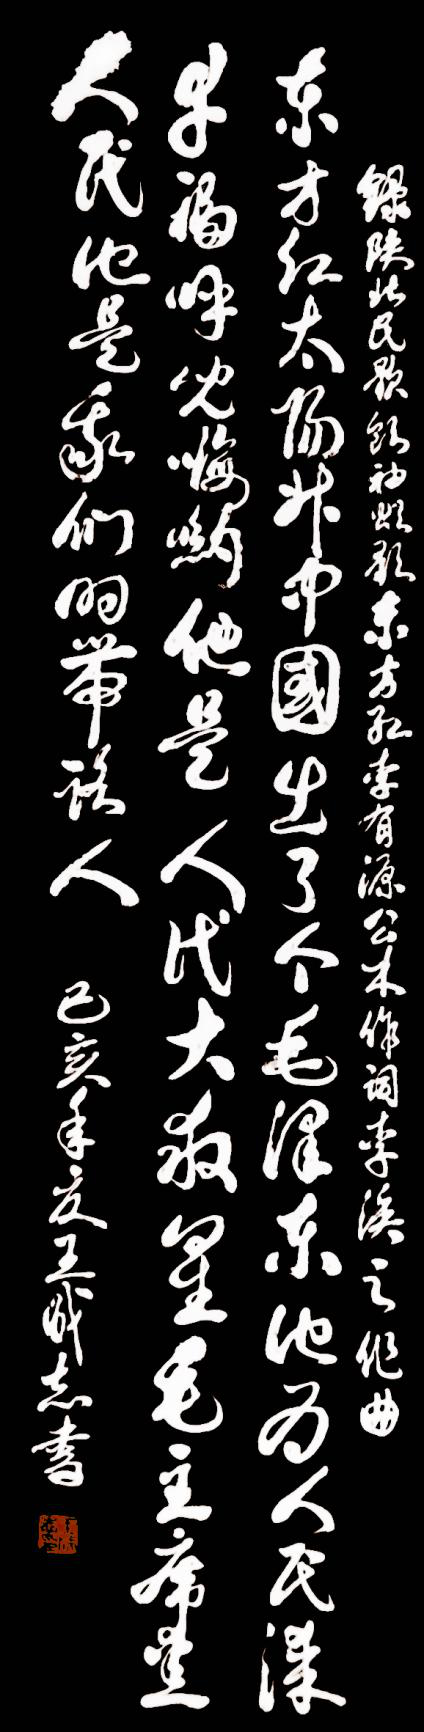 录陕北民歌领袖颂歌东方红李有源公木作词李涣之作曲
东方红太阳升中國出了个毛泽东他为人民谋
幸福呼儿嗨哟他是人民大救星毛主席爱
人民他是我们的带路人
己亥年夏王成志書